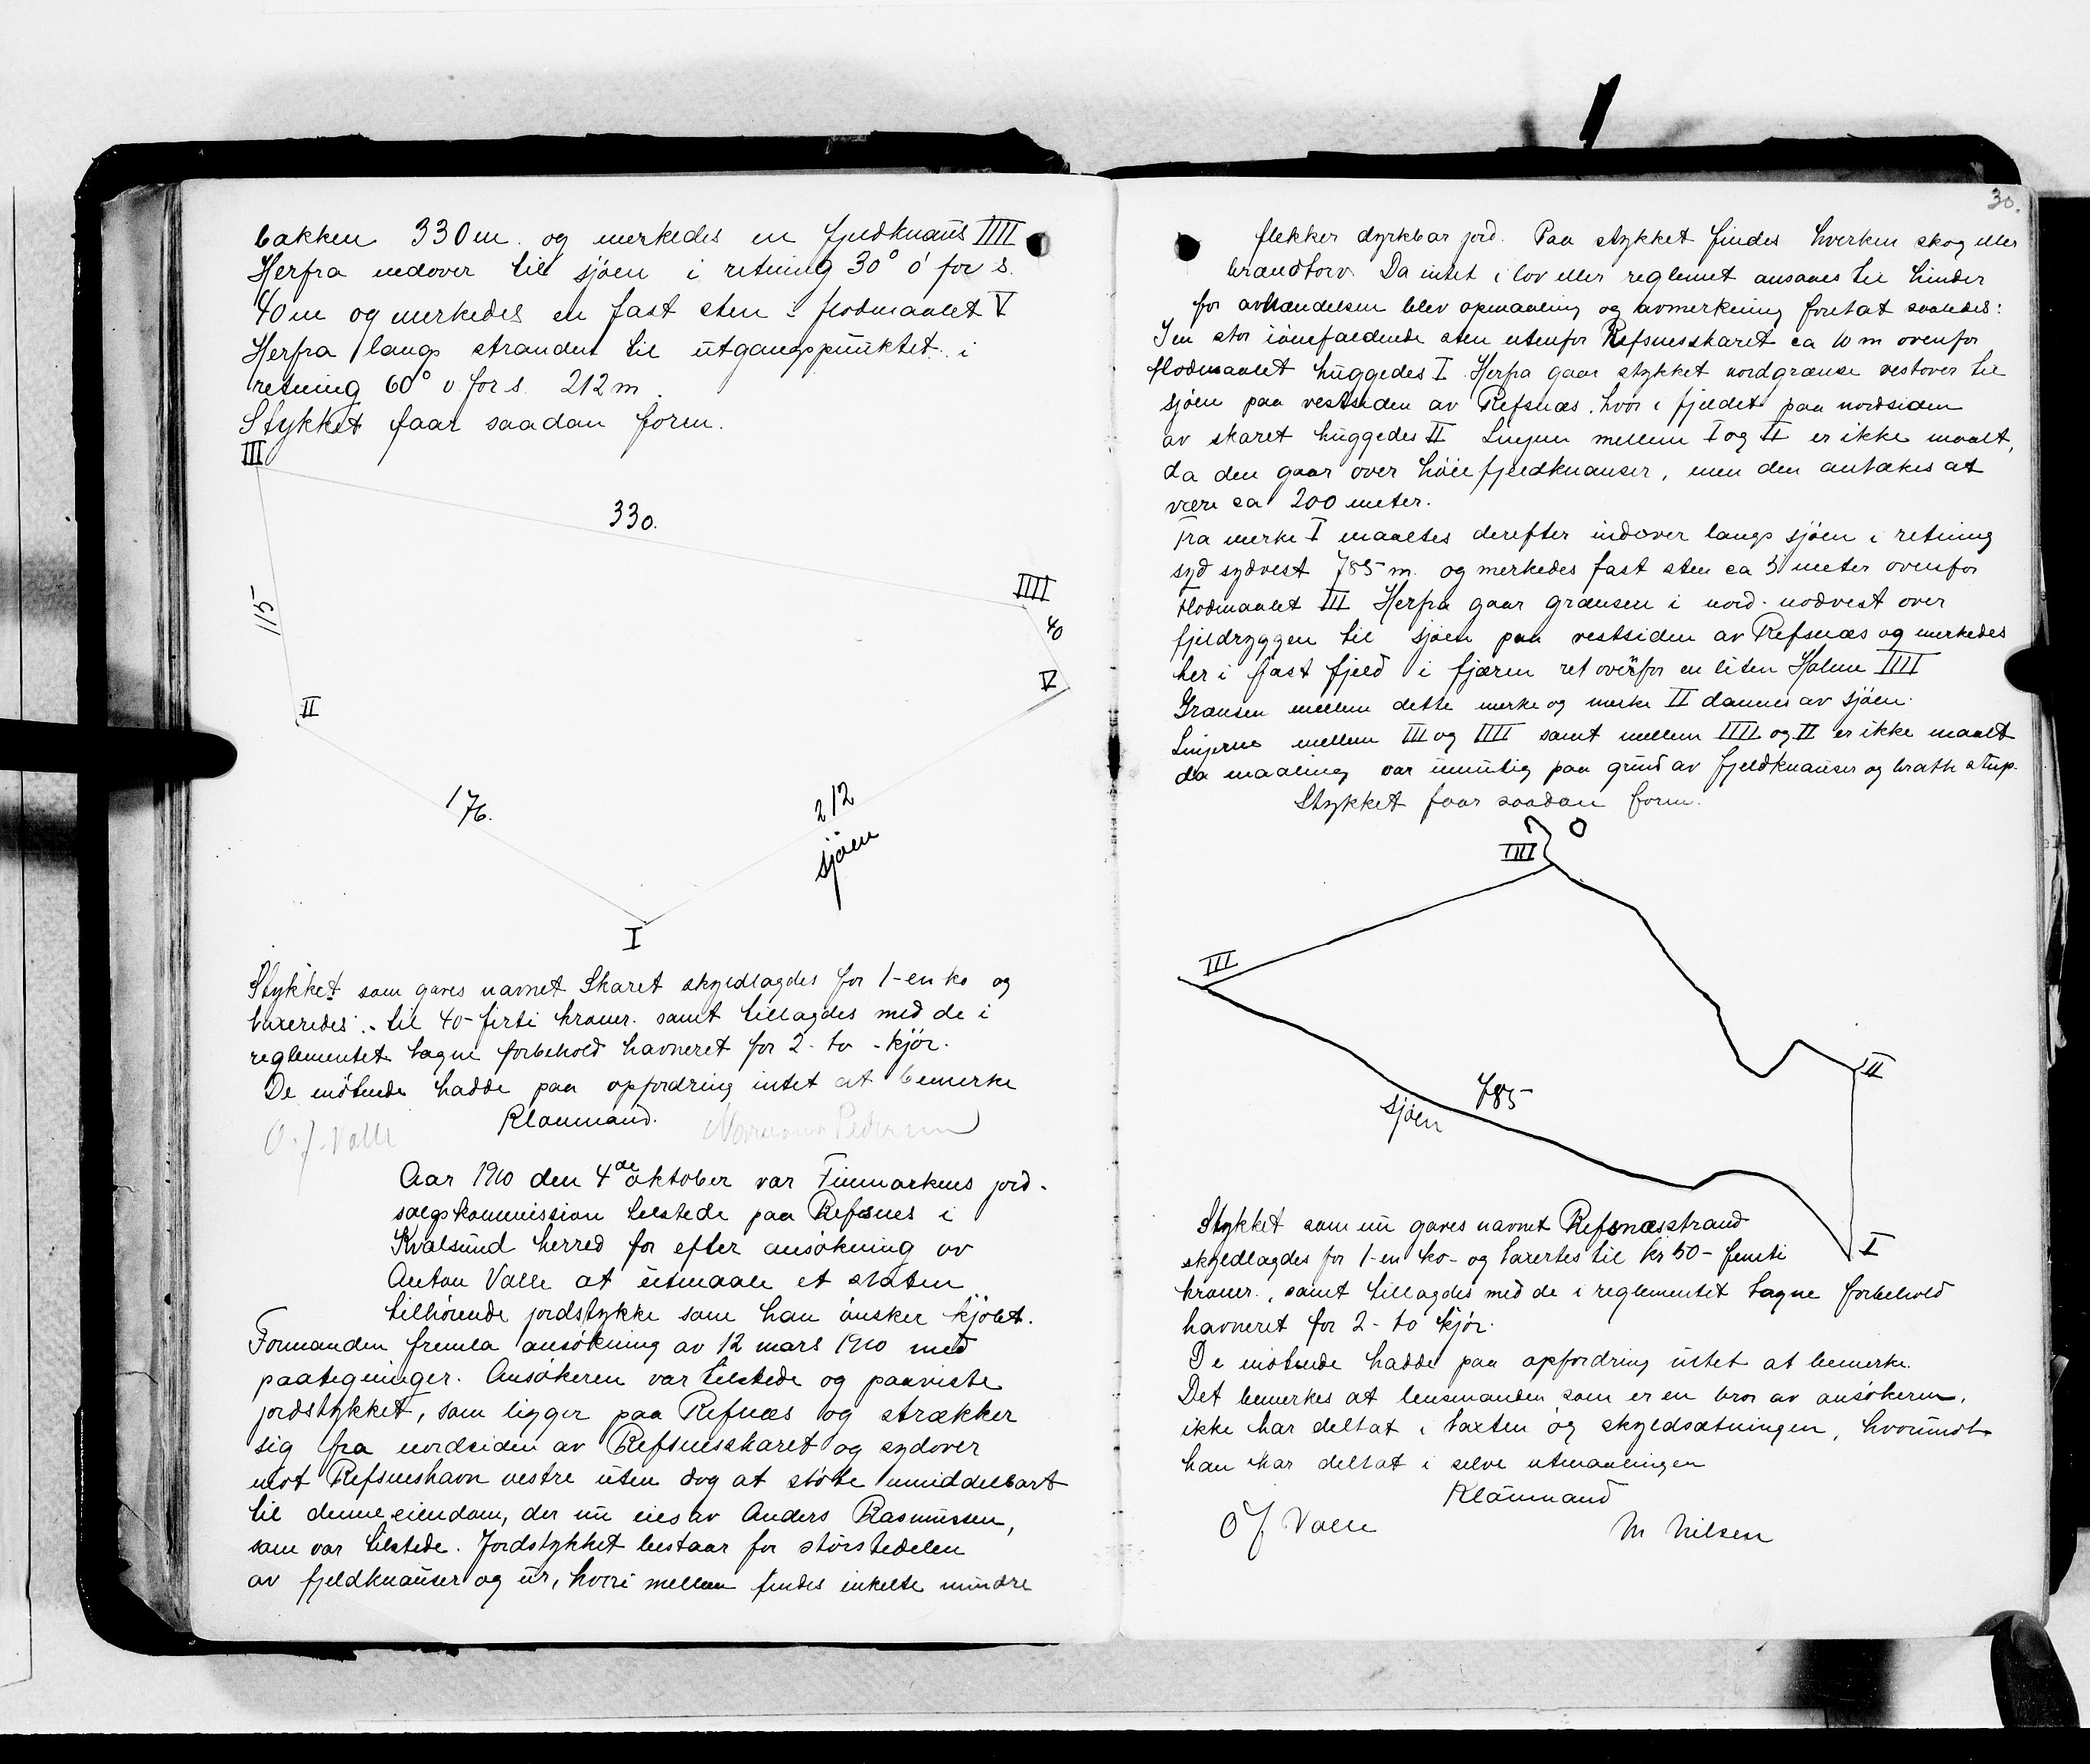 bakken 330 m. og merkedes en fjeldknaus IIII
Herfra nedover til sjöen i retning 30° ö for s.
40 m og merkedes en fast sten i flodmaalet V
Herfra langs stranden til utgangspunktet i
retning 60° v for s. 212 m.
Stykket faar saadan form.
III
330.
IIII
115
40
V
II
176.
212
sjöen
I
Stykket som gaves navnet Skaret skyldlagdes for 1-en ko og
taxeredes til 40-firti kroner. samt tillagdes med de i
reglementet tagne forbehold havneret for 2-to-kjör.
De mötende hadde paa opfordring intet at bemerke
Klaumand.
O. J. Valle
Pedersen
Aar 1910 den 4de oktober var Finmarkens jord-
salgskommission tilstede paa Refsnes i
Kvalsund herred for efter ansökning av
Anton Valle at utmaale et staten
tilhörende jordstykke som han önsker kjöbt.
Formanden fremla ansökning av 12 mars 1910 med
paategninger. Ansökeren var tilstede og paaviste
jordstykket, som ligger paa Refnæs og strækker
sig fra nordsiden av Refsnesskaret og sydover
mot Refsneshavn vestre uten dog at stöte umiddelbart
til denne eiendom, der nu eies av Anders Rasmussen,
som var tilstede. Jordstykket bestaar for störstedelen
av fjeldknauser og ur, hvori mellem findes enkelte mindre
30.
flekker dyrkbar jord. Paa stykket findes hverken skog eller
brændtorv. Da intet i lov eller reglement ansaaes til hinder
for avhændelsen blev opmaaling og avmerkning foretat saaledes:
I en stor iönefaldende sten utenfor Refsnesskaret ca 10 m ovenfor
flodmaalet huggedes I. Herfra gaar stykket nordgrænse vestover til
sjöen paa vestsiden av Refsnæs, hvor i fjeldet paa nordsiden
av skaret huggedes II Linjen mellem I og II er ikke maalt,
da den gaar over höie fjeldknauser, men den antakes at
være ca 200 meter.
Fra merke I maaltes derefter indover langs sjöen i retning
syd sydvest 785 m. og merkedes fast sten ca 3 meter ovenfor
flodmaalet III Herfra gaar grænsen i nord-nodvest over
fjeldryggen til sjöen paa vestsiden av Refsnæs og merkedes
her i fast fjeld i fjæren ret overfor en liten Holme IIII
Grænsen mellem dette merke og merke II dannes av sjöen.
Linjerne mellem III og IIII samt mellem IIII og II er ikke maalt
da maaling var umulig paa grund av fjeldknauser og bratte stup.
Stykket faar saadan form.
IIII
III
II
785
sjöen
I
Stykket som nu gaves navnet Refsnæsstrand
skyldlagdes for 1-en ko- og taxertes til kr 50- femti
kroner., samt tillagdes med de i reglementet tagne forbehold
havneret for 2-to kjör.
De mötende hadde paa opfordring intet at bemerke.
Det bemerkes at lensmanden som er en bror av ansökeren,
ikke har deltat i taxten og skyldsætningen, hvorimot
han har deltat i selve utmaalingen
Klaumand
O J Valle
M Nilsen